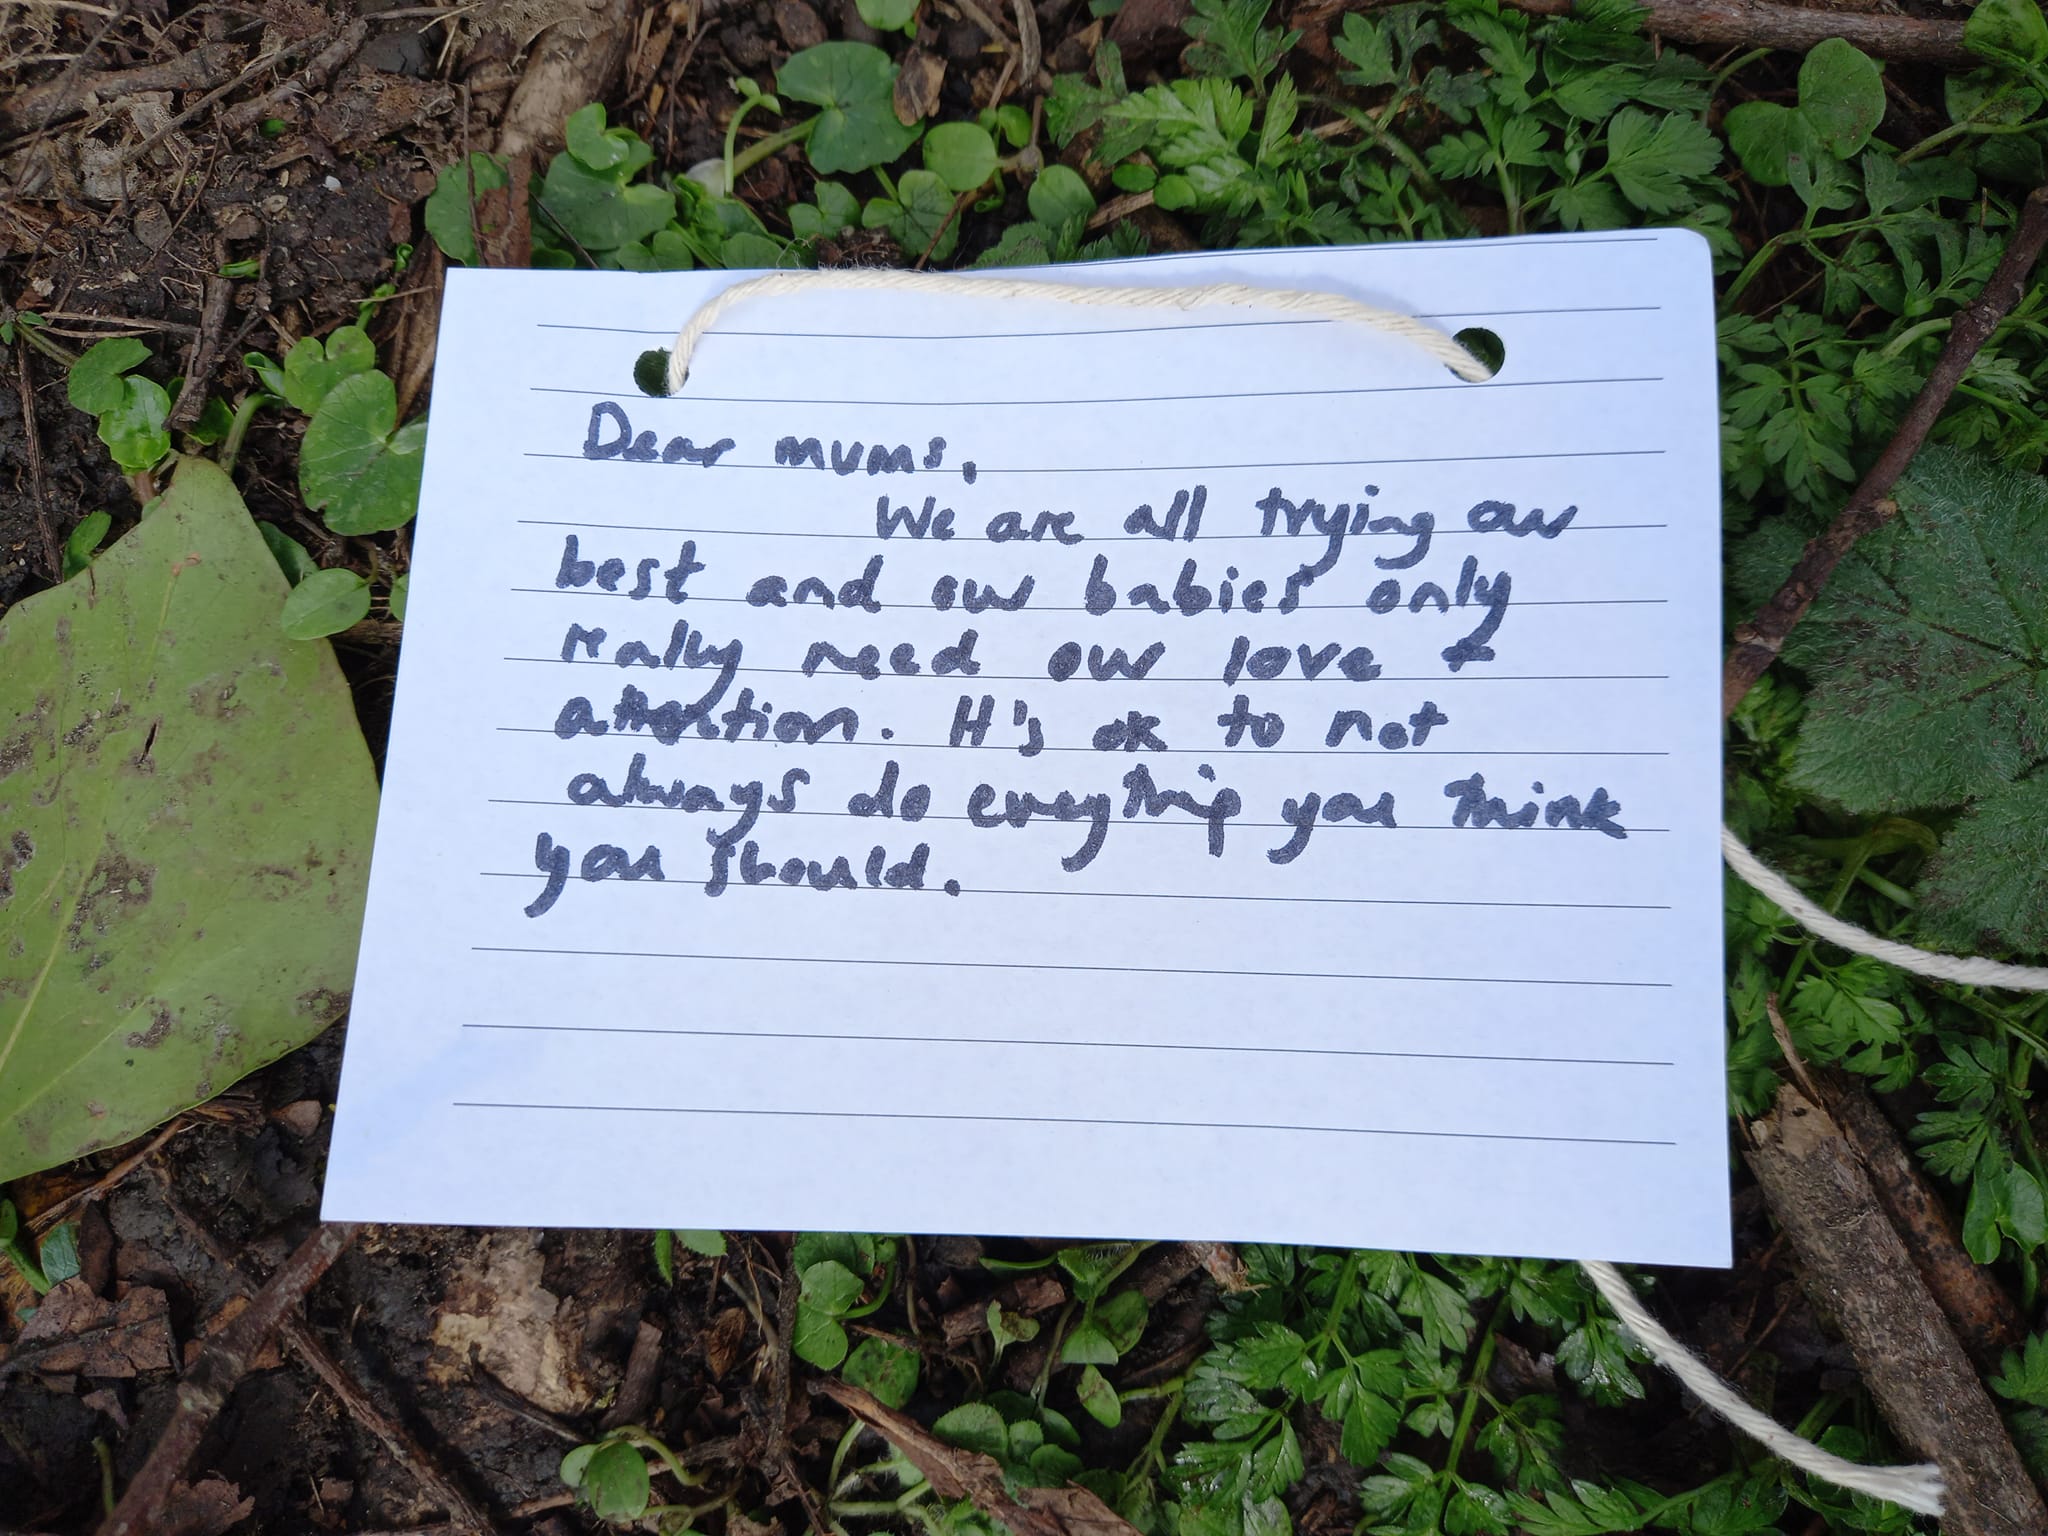 Dear mums,
We are all trying our
best and our babies only
really need our love &
attention. It's ok to not
always do everything you think
you should.